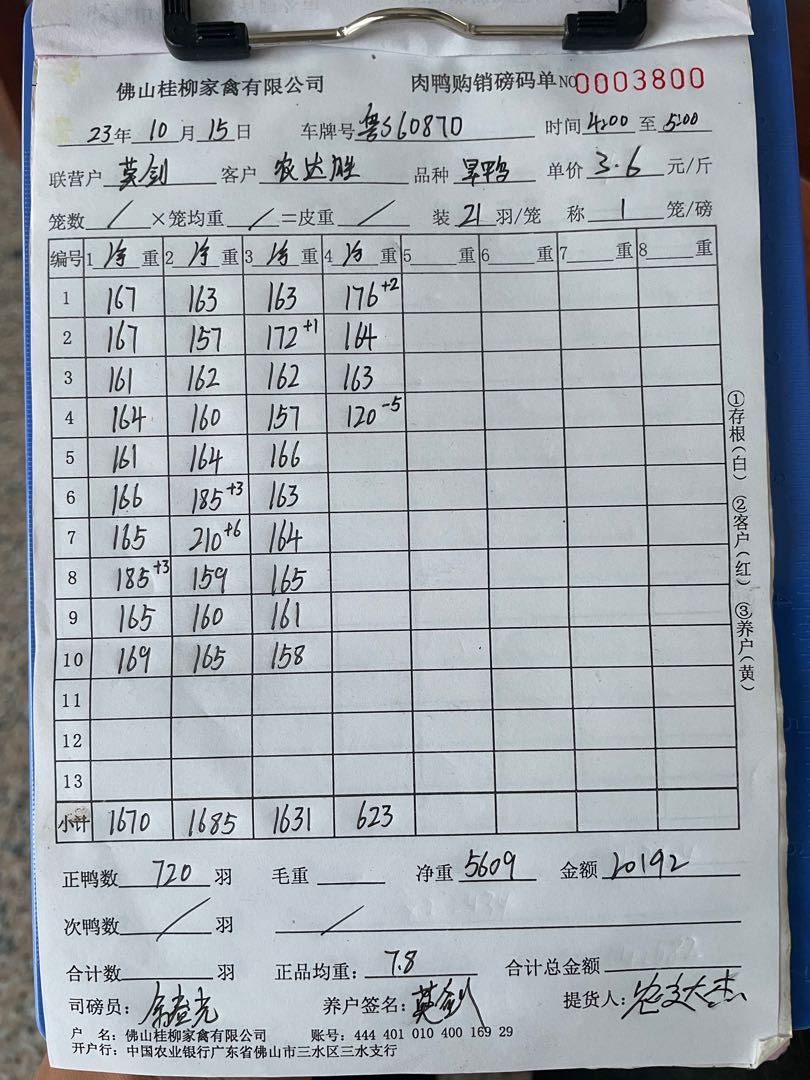 佛山桂柳家禽有限公司 肉鸭购销磅码单 NO 0003800
23年 10月 15日 车牌号 粤S60870 时间 4:00 至 5:00
联营户 莫剑 客户 农达胜 品种 旱鸭 单价 3.6 元/斤
笼数 / ×笼均重 / =皮重 / 装 21 羽/笼 称 1 笼/磅
编号 1 净 重 2 净 重 3 净 重 4 净 重 5 重 6 重 7 重 8 重
1 167 163 163 176+2
2 167 157 172+1 164
3 161 162 162 163
4 164 160 157 120-5
5 161 164 166
6 166 185+3 163
7 165 210+6 164
8 185+3 159 165
9 165 160 161
10 169 165 158
11
12
13
小计 1670 1685 1631 623
正鸭数 720 羽 毛重 净重 5609 金额 20192
次鸭数 / 羽 /
合计数 羽 正品均重: 7.8 合计总金额
司磅员: 养户签名: 莫剑 提货人:
户 名: 佛山桂柳家禽有限公司 账号: 444 401 010 400 169 29
开户行: 中国农业银行广东省佛山市三水区三水支行
①存根(白) ②客户(红) ③养户(黄)